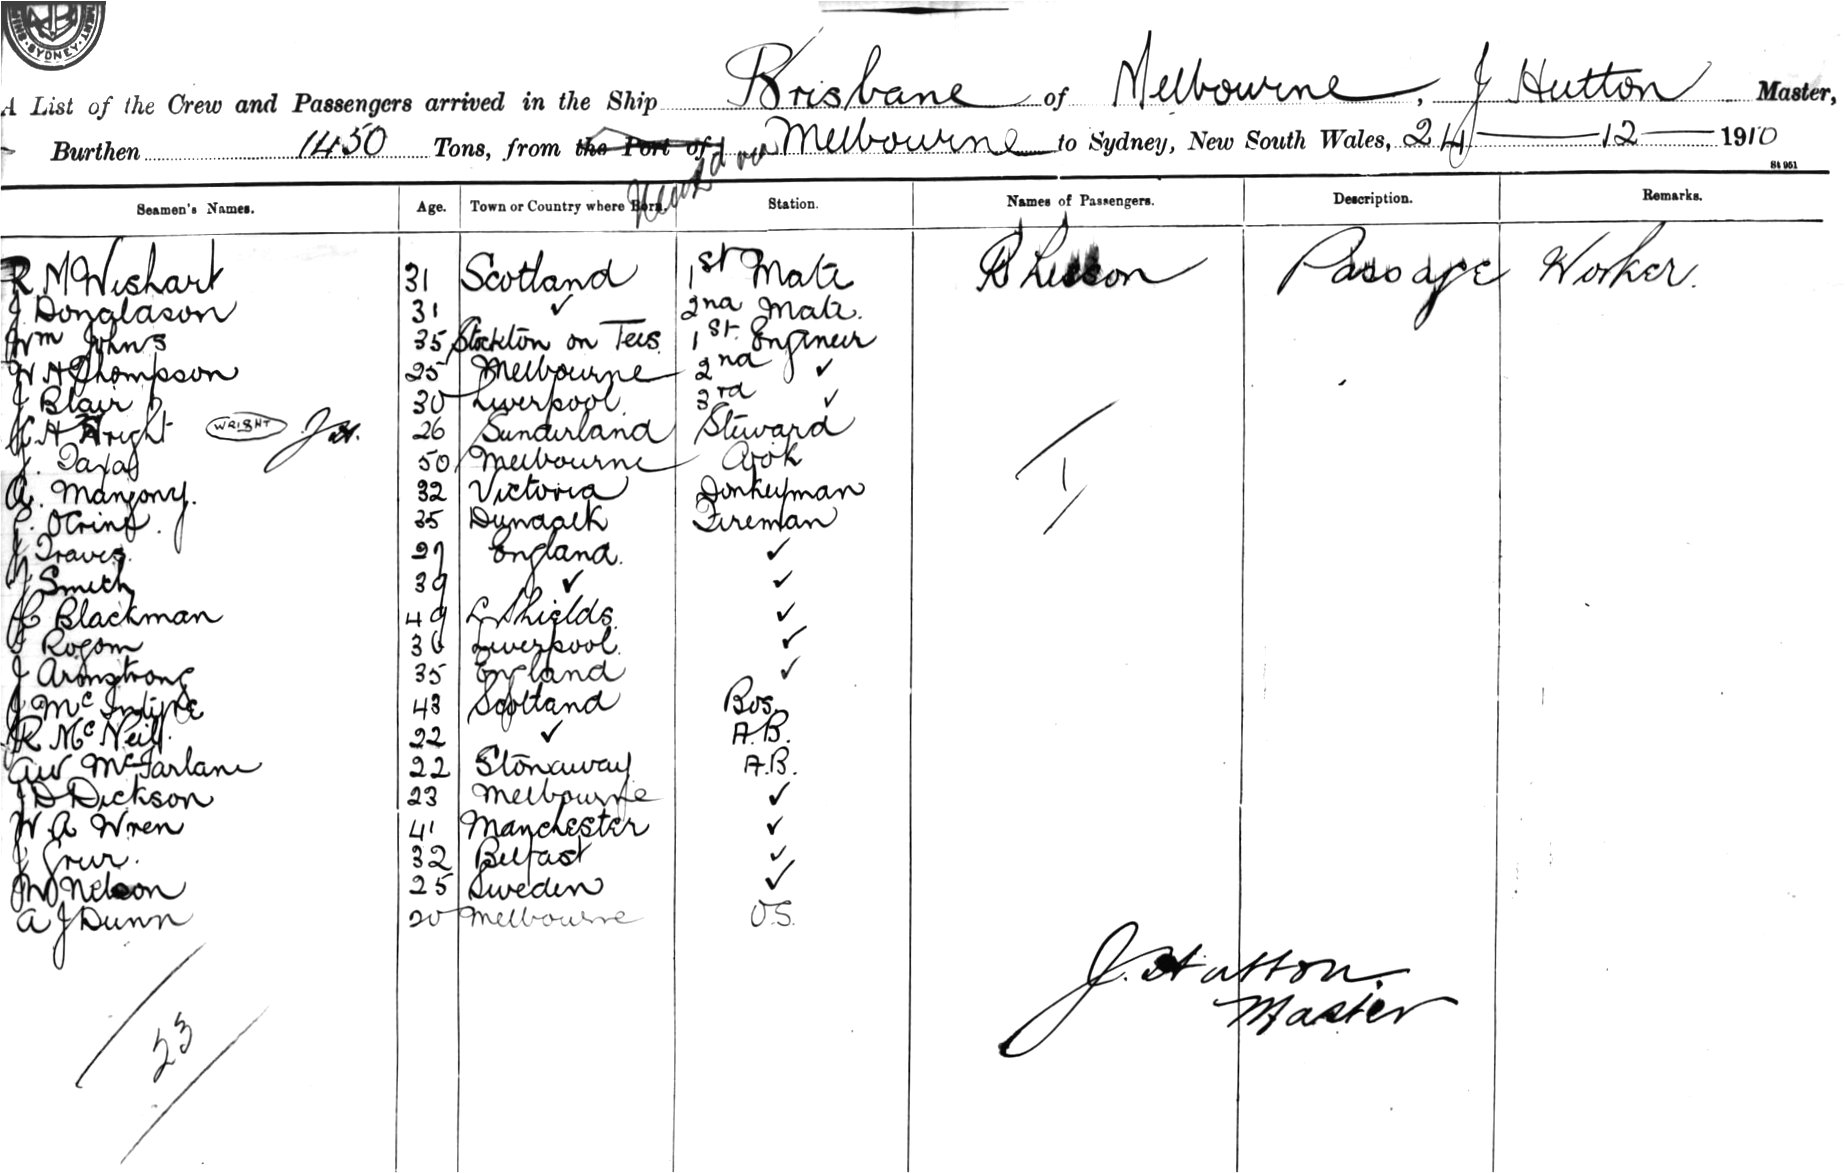 SYDNEY
A List of the Crew and Passengers arrived in the Ship Brisbane of Melbourne, J Hutton Master,
Burthen 1450 Tons, from the Port of Melbourne to Sydney, New South Wales, 24 — 12 — 1910
St 951
Seamen's Names. Age. Town or Country where Born. Station. Names of Passengers. Description. Remarks.
R M Wishart 31 Scotland 1st Mate Passage Worker.
J Donaldson 31 ✓ 2nd Mate.
Wm Johns 35 Stockton on Tees 1st Engineer
W H Thompson 25 Melbourne 2nd ✓
J Blair 30 Liverpool 3rd ✓
H Wright WRIGHT J H. 26 Sunderland Steward
J. 50 Melbourne Cook
A. Mangony. 32 Victoria Donkeyman
35 Dundalk Fireman
J Traves. 27 England. ✓
J Smith 39 ✓ ✓
Blackman 49 Shields ✓
Rogom 36 Liverpool. ✓
J Armstrong 35 England ✓
J McIntyre 43 Scotland Bos.
R McNeill. 22 ✓ A.B.
AW McFarlane 22 Stonaway A.B.
J D Dickson 23 Melbourne ✓
W A Wren 41 Manchester ✓
J Grur. 32 Belfast ✓
W Nelson 25 Sweden ✓
A J Dunn 20 Melbourne O.S.
1
J. Hutton.
Master
23